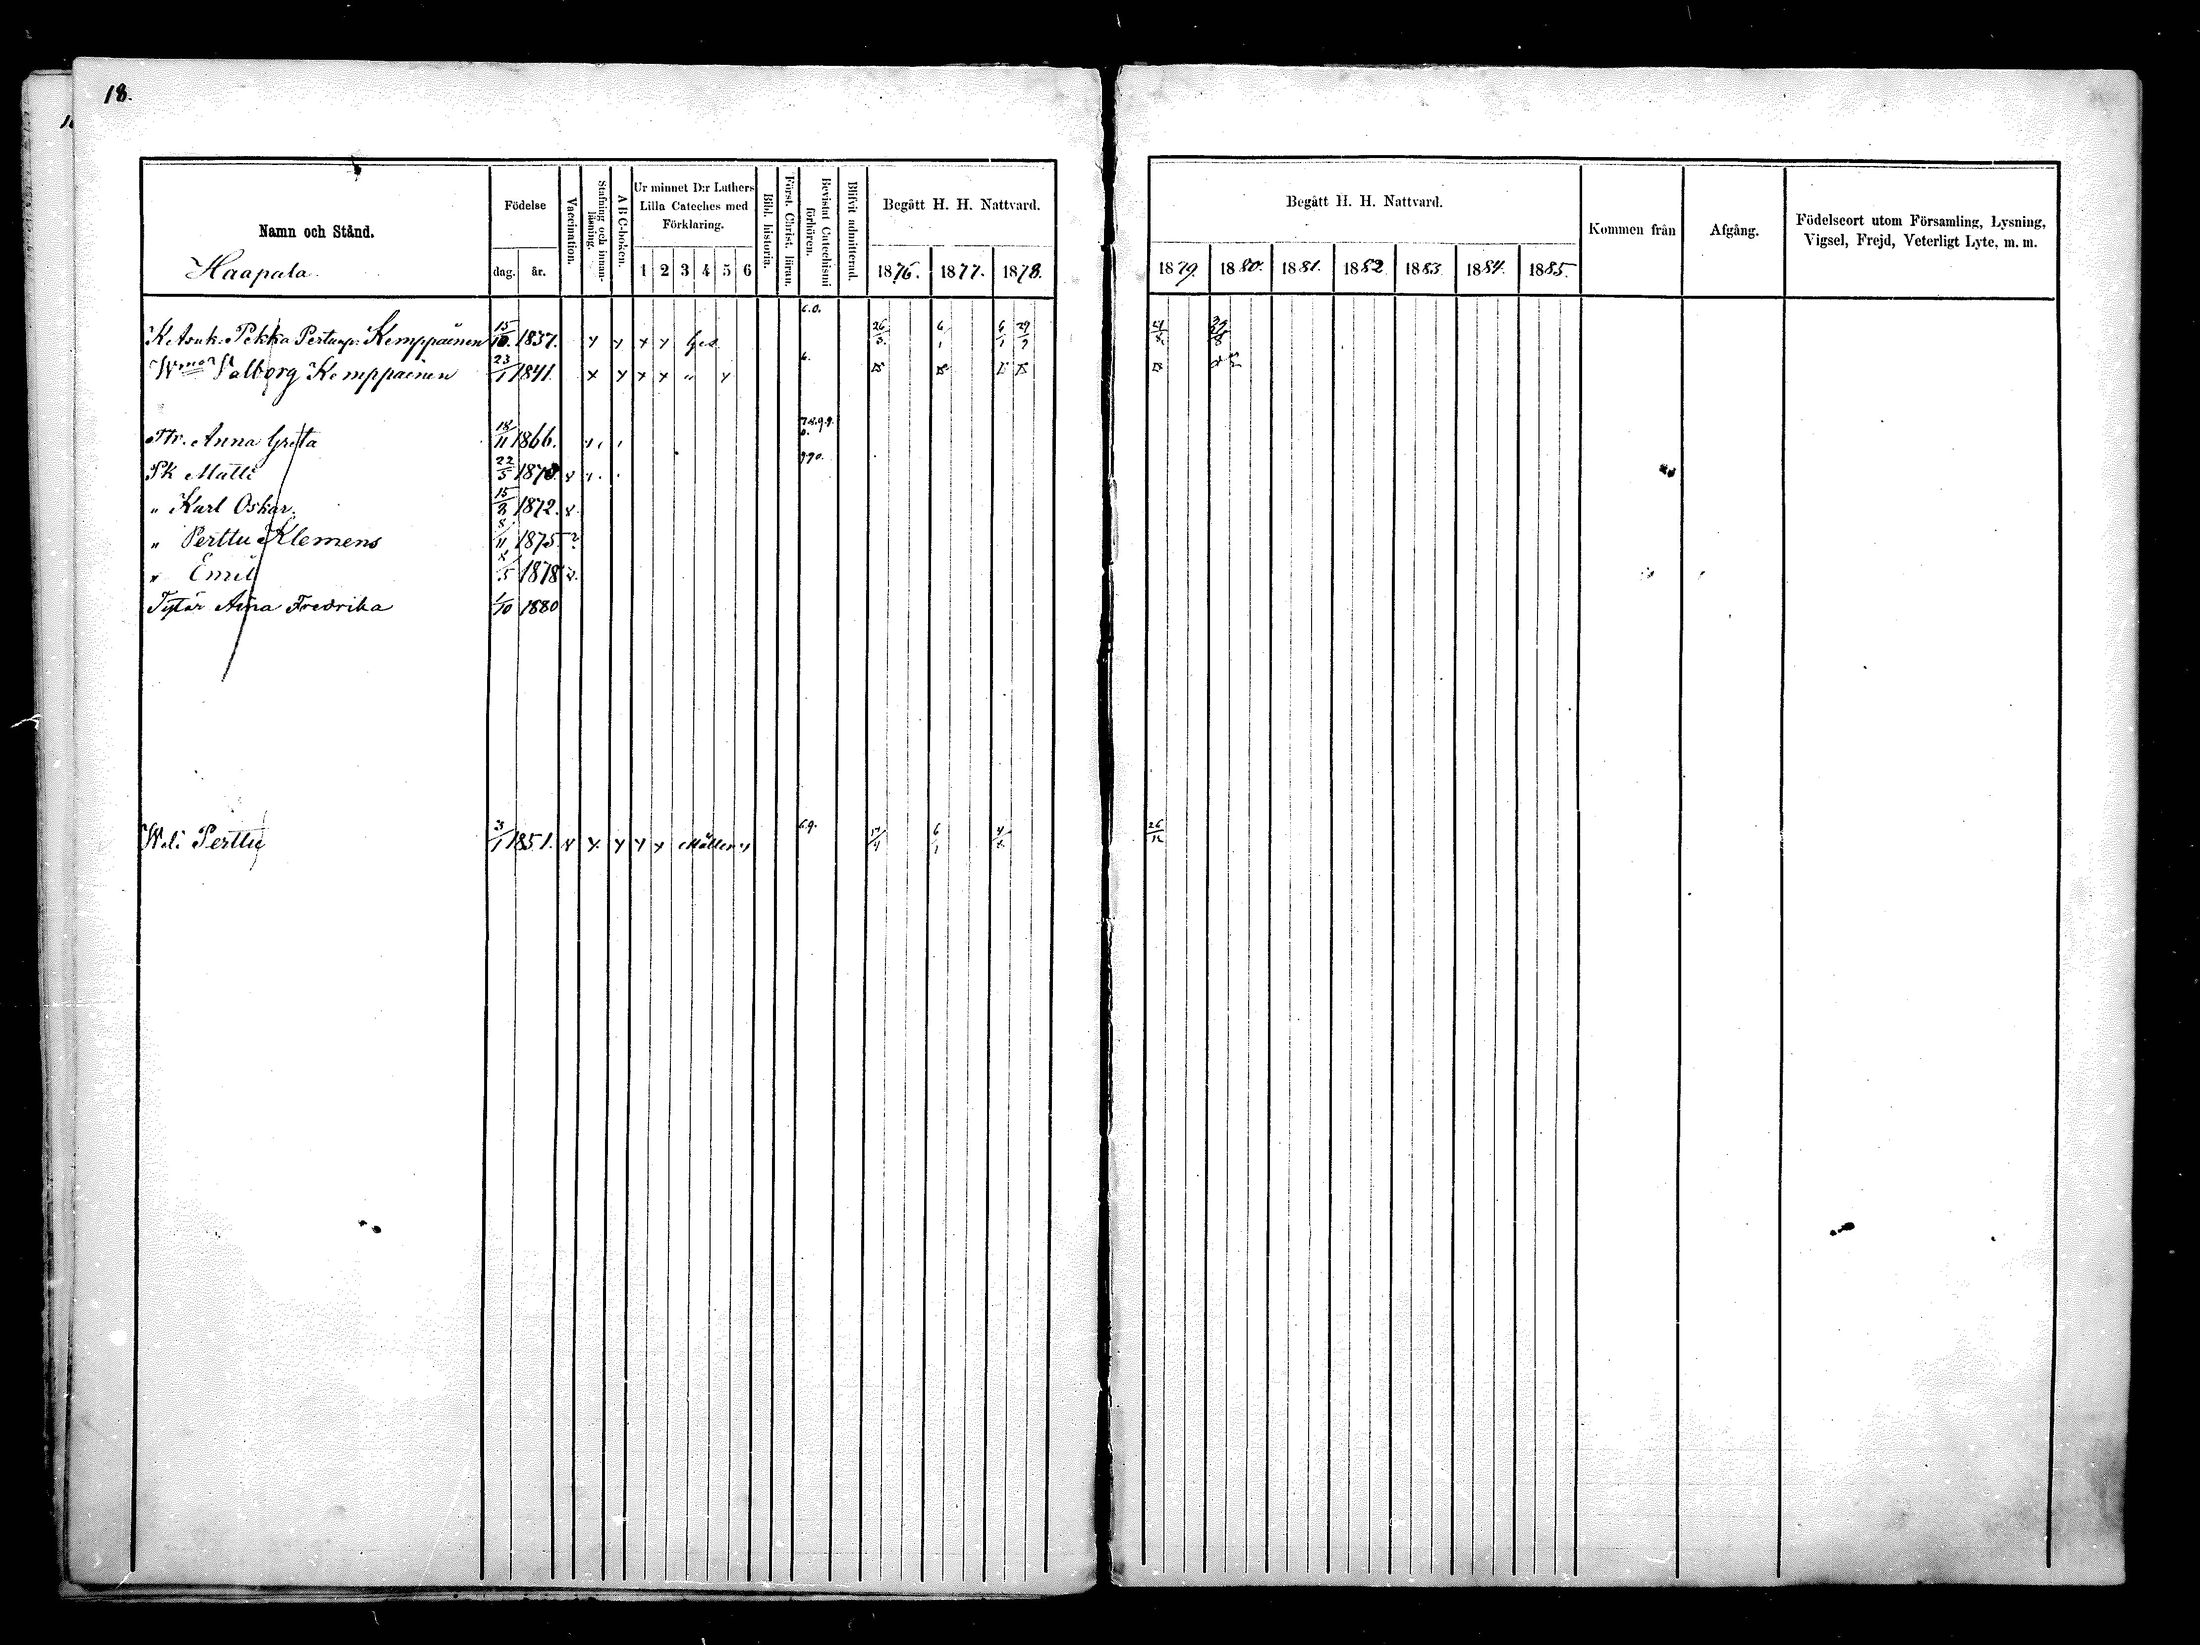 18.
Namn och Stånd.
Haapala.
Födelse
dag. år.
Vaccination.
Stafning och innanläsning.
A B C-boken.
Ur minnet D:r Luthers Lilla Cateches med Förklaring.
1 2 3 4 5 6
Bibl. historia.
Först. Christ. läran.
Bevistat Catechismi förhören.
Blifvit admitterad.
Begått H. H. Nattvard.
1876. 1877. 1878.
Begått H. H. Nattvard.
1879. 1880. 1881. 1882 1883. 1884. 1885.
Kommen från
Afgång.
Födelseort utom Församling, Lysning,
Vigsel, Frejd, Veterligt Lyte, m. m.
Pekka Kemppainen 15/10 1837. 26/3 6/1 6/1 29/9
Wmo Valborg Kemppainen 23/1 1841. 6.
Ttr. Anna Greta 18/11 1866. 7.8.9.9. 0.
Pk Matti 22/5 1870.
" Karl Oskar. 15/8 1872.
" Perttu Klemens 8/11 1875 ?
" Emil 8/5 1878
Tytär Aina Fredrika 1/10 1880
Weli Perttu 1851. 6.9. 6/1 26/12